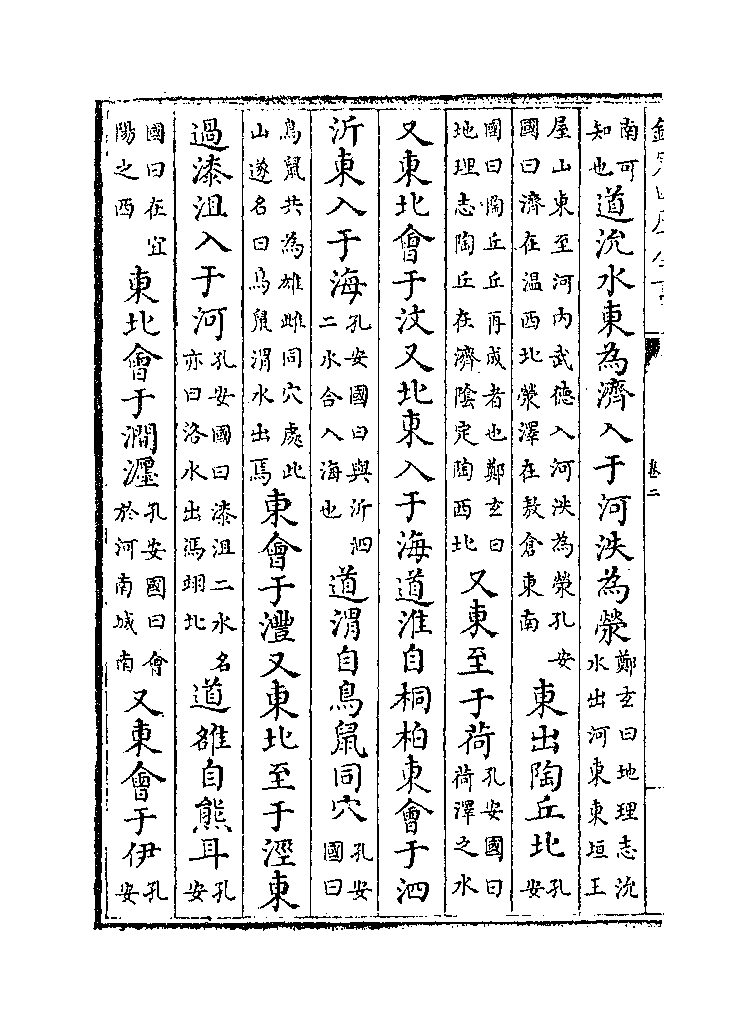 欽定四庫全書 卷二
南可知也道沇水東為濟入于河泆為滎鄭玄曰地理志沇水出河東東垣王
屋山東至河内武德入河泆為滎孔安國曰濟在温西北滎澤在敖倉東南東出陶丘北孔安
國曰陶丘丘再成者也鄭玄曰地理志陶丘在濟陰定陶西北又東至于荷孔安國曰荷澤之水
又東北會于汶又北東入于海道淮自桐柏東會于泗
沂東入于海孔安國曰與沂泗二水合入海也道渭自鳥鼠同穴孔安國曰
鳥鼠共為雄雌同穴處此山遂名曰鳥鼠渭水出焉東會于灃又東北至于涇東
過漆沮入于河孔安國曰漆沮二水名亦曰洛水出馮翊北道雒自熊耳孔安
國曰在宜陽之西東北會于澗瀍孔安國曰會於河南城南又東會于伊孔安